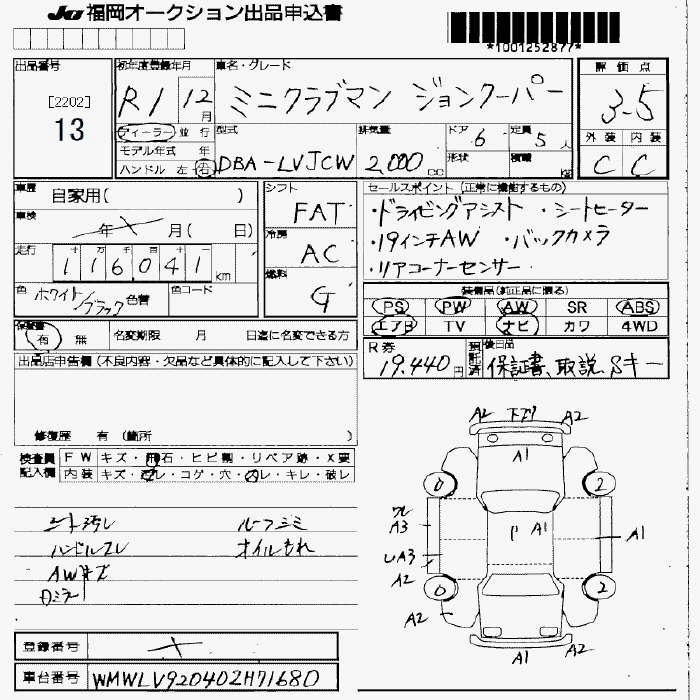 JU 福岡オークション出品申込書
*1001252877*
出品番号
[2202]
13
初年度登録年月
R1 12月
車名・グレード
ミニクラブマン ジョンクーパー
評価点
3-5
外装 内装
C C
ディーラー 並行
モデル年式 年
ハンドル 左 右
型式
DBA-LVJCW
排気量
2,000 cc
ドア 6
形状
定員 5人
積載 kg
車歴
自家用( )
車検
年 月( 日)
走行
十万千百十一
116041 km
色
ホワイト/ブラック 色替
色コード
シフト
FAT
冷房
AC
燃料
G
セールスポイント (正常に機能するもの)
・ドライビングアシスト ・シートヒーター
・19インチAW ・バックカメラ
・リアコーナーセンサー
装備品(純正品に限る)
PS PW AW SR ABS
エアB TV ナビ カワ 4WD
保証書
有 無 名変期限 月 日迄に名変できる方
R券
19,440円
預託済
後日品
保証書、取説、Sキー
出品店申告欄(不良内容・欠品など具体的に記入して下さい)
修復歴 有 (箇所 )
検査員記入欄
FW キズ・飛石・ヒビ割・リペア跡・X要
内装 キズ・スレ・コゲ・穴・ヨレ・キレ・破レ
シート汚レ ルーフシミ
ハンドルスレ オイルもれ
AWキズ
登録番号
車台番号 WMWLV920402H71680
A2 下スリ A2
A1
0 2
A3
P A1
A1
UA3
A2
0 2
A2 A2
A1 A2